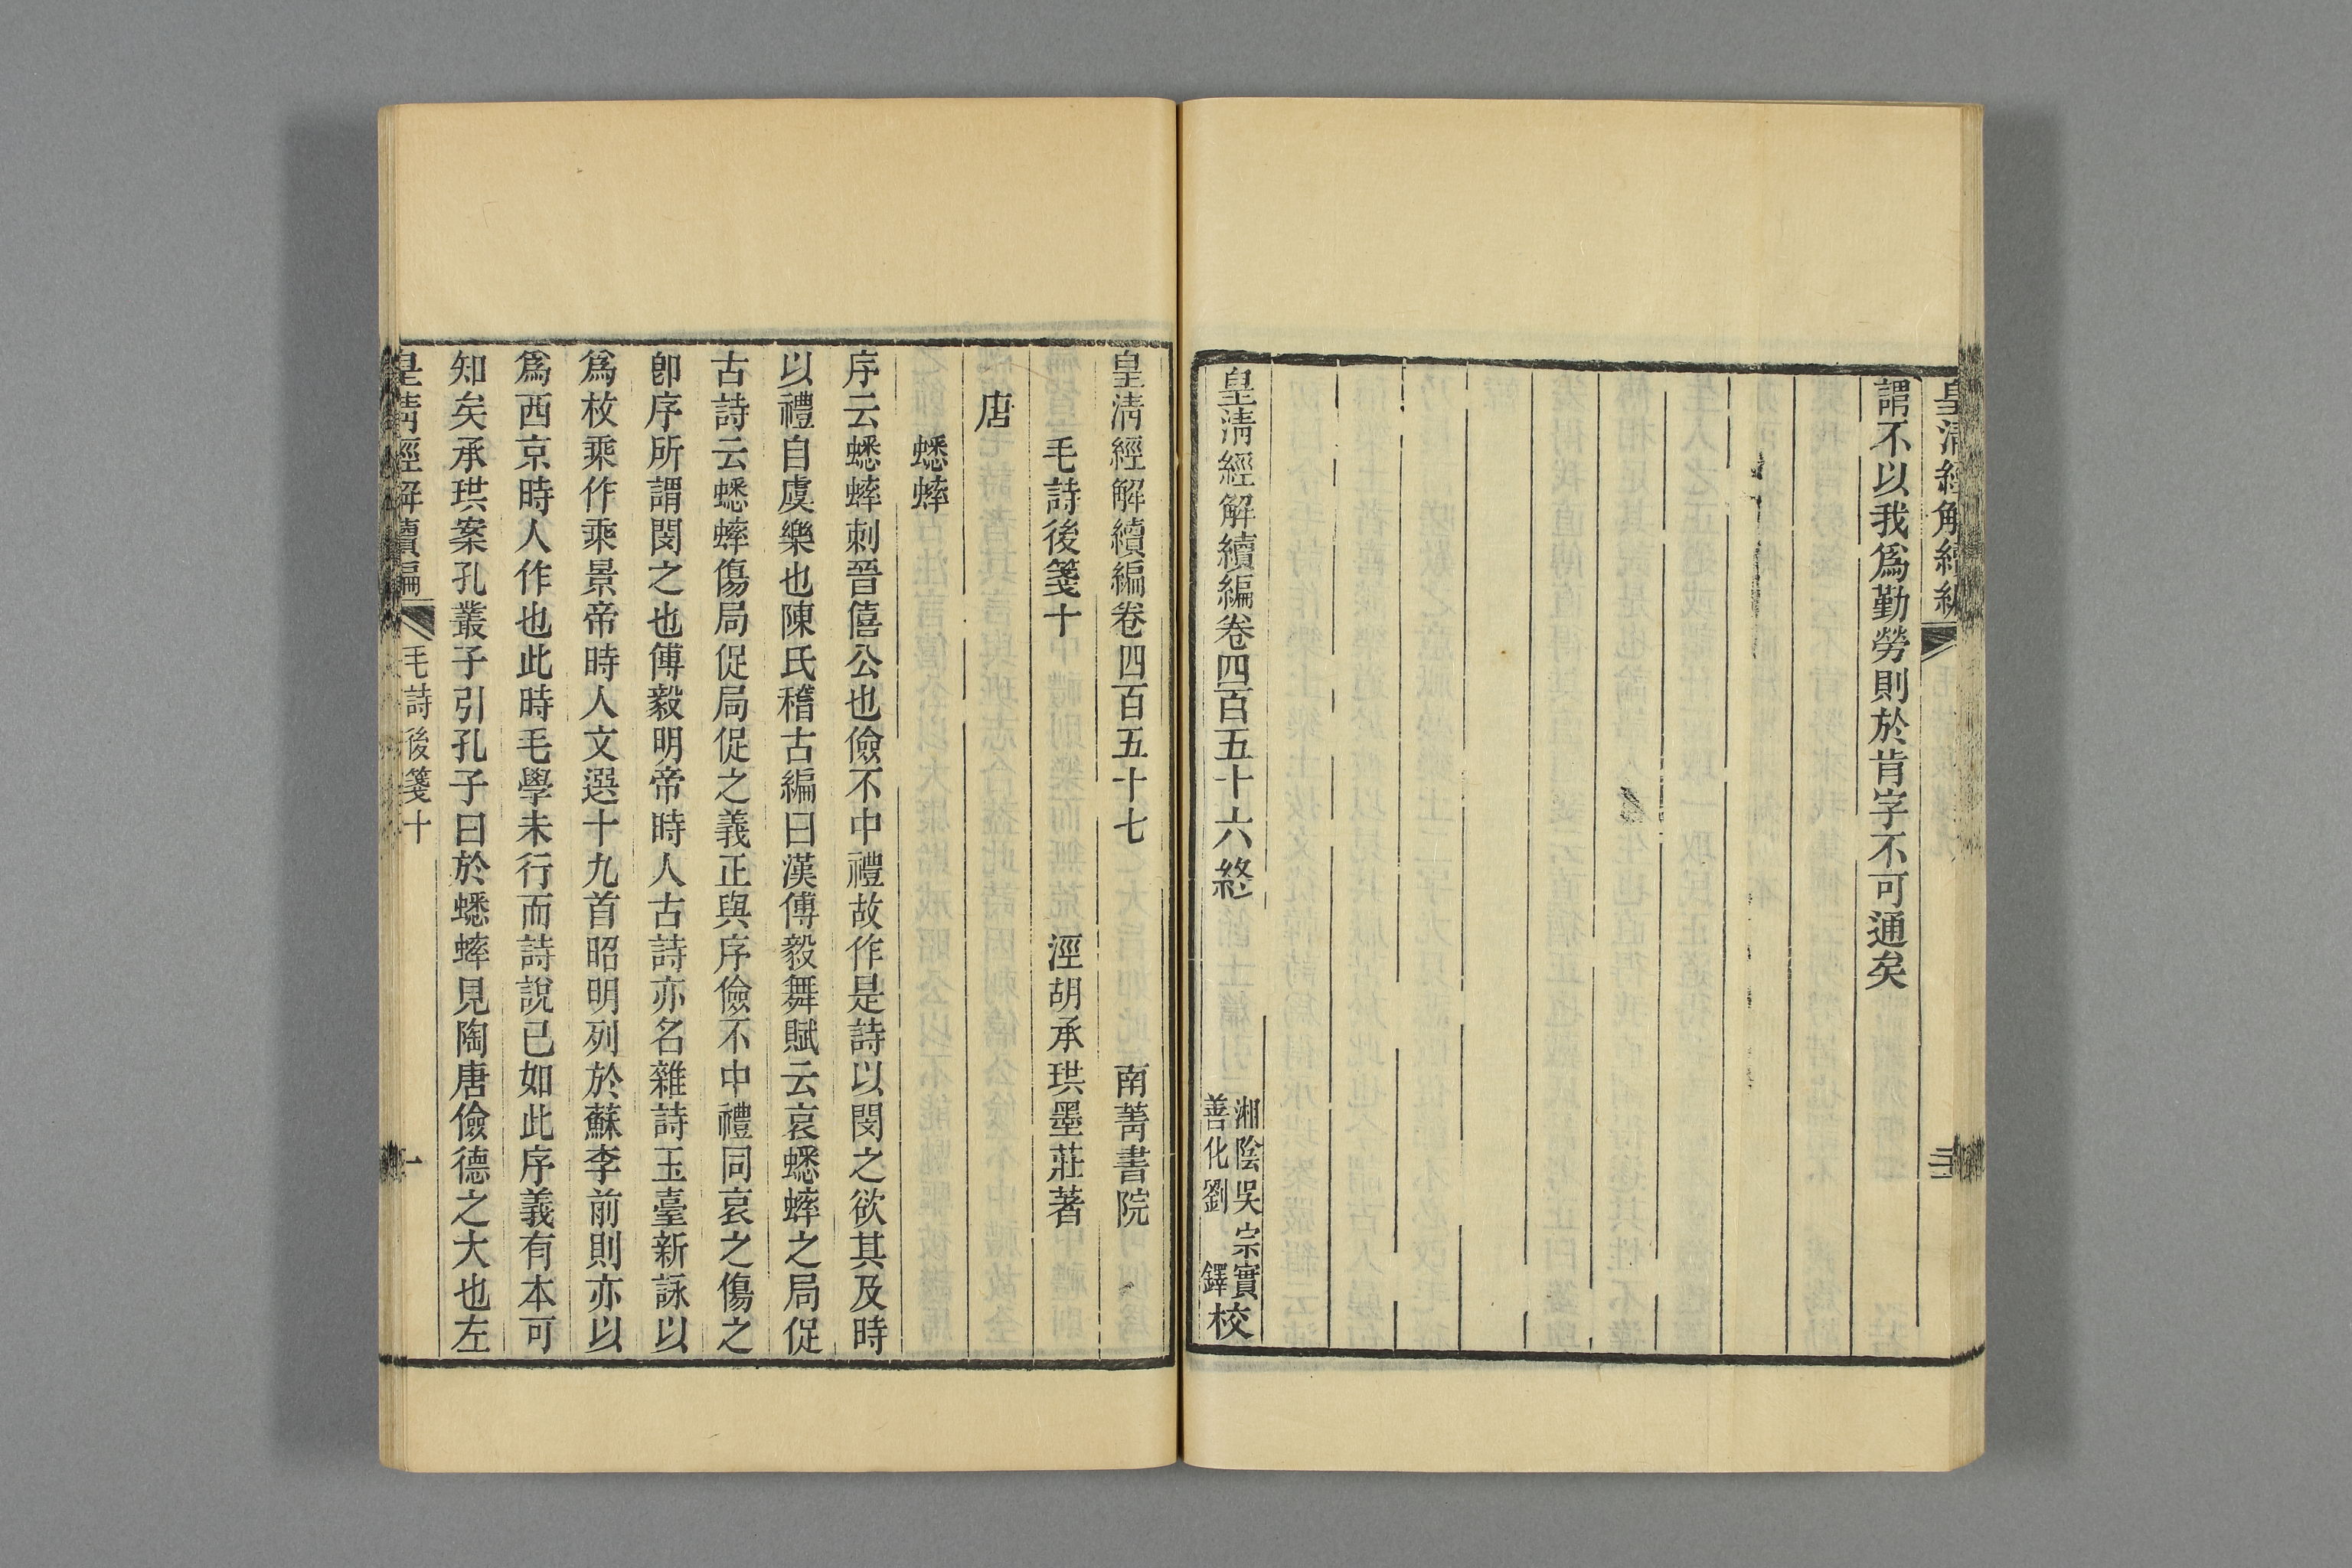 皇清經解續編
三
謂不以我爲勤勞則於肯字不可通矣
皇清經解續編卷四百五十六終
湘陰吳宗實
善化劉鐸
校
皇清經解續編卷四百五十七
南菁書院
毛詩後箋十
涇胡承珙墨莊著
唐
蟋蟀
序云蟋蟀刺晉僖公也儉不中禮故作是詩以閔之欲其及時
以禮自虞樂也陳氏稽古編曰漢傅毅舞賦云哀蟋蟀之局促
古詩云蟋蟀傷局促局促之義正與序儉不中禮同哀之傷之
卽序所謂閔之也傅毅明帝時人古詩亦名雜詩玉臺新詠以
爲枚乘作乘景帝時人文選十九首昭明列於蘇李前則亦以
爲西京時人作也此時毛學未行而詩說已如此序義有本可
知矣承珙案孔叢子引孔子曰於蟋蟀見陶唐儉德之大也左
皇清經解續編
毛詩後箋十
一